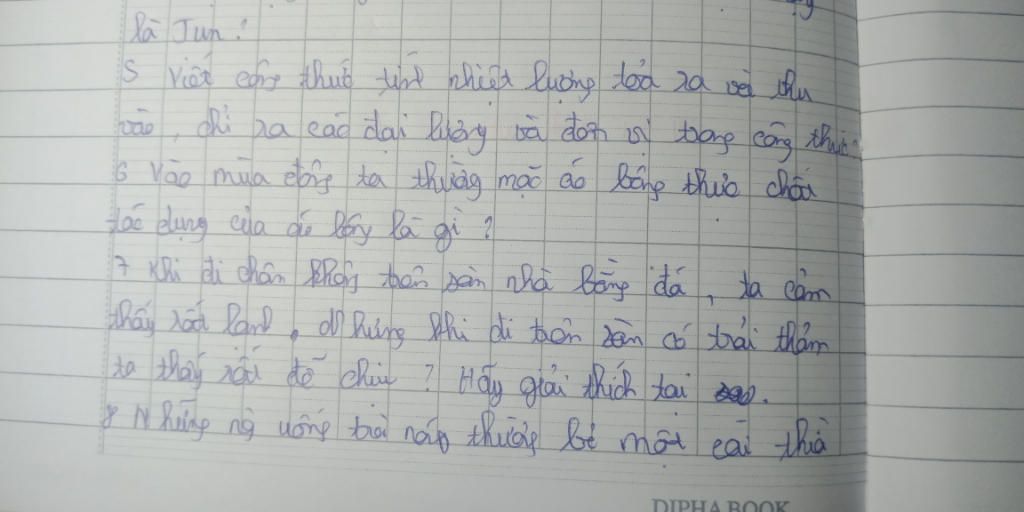 là Jun ?
5 Viết công thức tính nhiệt lượng toả ra và thu
vào, chỉ ra các đại lượng và đơn vị trong công thức
6 Vào mùa đông ta thường mặc áo bông thức chất
tác dụng của áo bông là gì ?
7 Khi đi chân không trên sàn nhà bằng đá, ta cảm
thấy rất lạnh, Nhưng khi đi trên sàn có trải thảm
ta thấy rất dễ chịu ? Hãy giải thích tại sao.
8 Những ng uống trà nóng thường bỏ một cái thìa
DIPHA BOOK